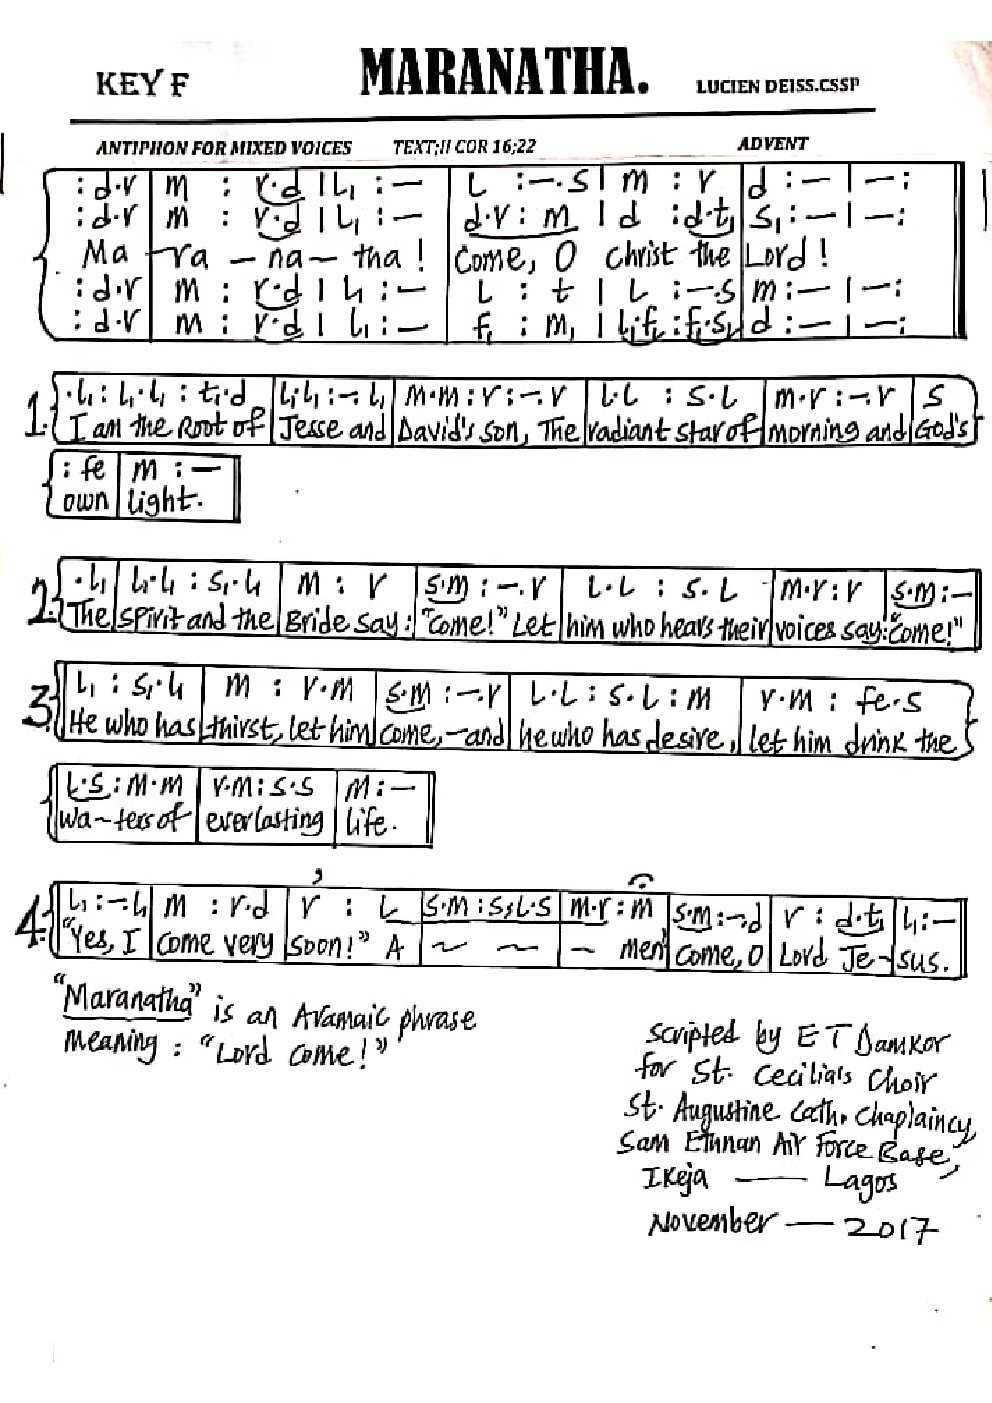 KEY F MARANATHA. LUCIEN DEISS.CSSP
ANTIPHON FOR MIXED VOICES TEXT;!! COR 16;22 ADVENT
: d·r | m : r·d | l₁ : — | l : —·s | m : r | d : — | — :
: d·r | m : r·d | l₁ : — | d·r : m | d : d·t₁ | s₁ : — | — :
Ma - ra - na - tha ! Come, O Christ the Lord !
: d·r | m : r·d | l₁ : — | l : t | l : —·s | m : — | — :
: d·r | m : r·d | l₁ : — | f₁ : m₁ | l₁·f₁ : f₁·s₁ | d : — | — :
1. ·l₁ : l₁·l₁ : t₁·d | l₁·l₁ : —·l₁ | m·m : r : —·r | l·l : s·l | m·r : —·r | s
I am the Root of Jesse and David's son, The radiant star of morning and God's
: fe | m : —
own light.
2. ·l₁ | l₁·l₁ : s₁·l₁ | m : r | s·m : —·r | l·l : s·l | m·r : r | s·m : —
The spirit and the Bride say : "Come!" Let him who hears their voices say: "Come!"
3. l₁ : s₁·l₁ | m : r·m | s·m : —·r | l·l : s·l : m | r·m : fe·s
He who has thirst, let him come, — and he who has desire, let him drink the
l·s : m·m | r·m : s·s | m : —
wa~ters of everlasting life.
4. l₁ : —·l₁ | m : r·d | r : l | s·m : s;l·s | m·r : m | s·m : —·d | r : d·t₁ | l₁ : —
"Yes, I come very soon!" A ~ ~ – men come, O Lord Je - sus.
"Maranatha" is an Aramaic phrase
meaning : "Lord come!"
scripted by E T Damkor
for St. Cecilia's Choir
St. Augustine Cath. Chaplaincy,
Sam Ethnan Air Force Base,
Ikeja — Lagos
November — 2017